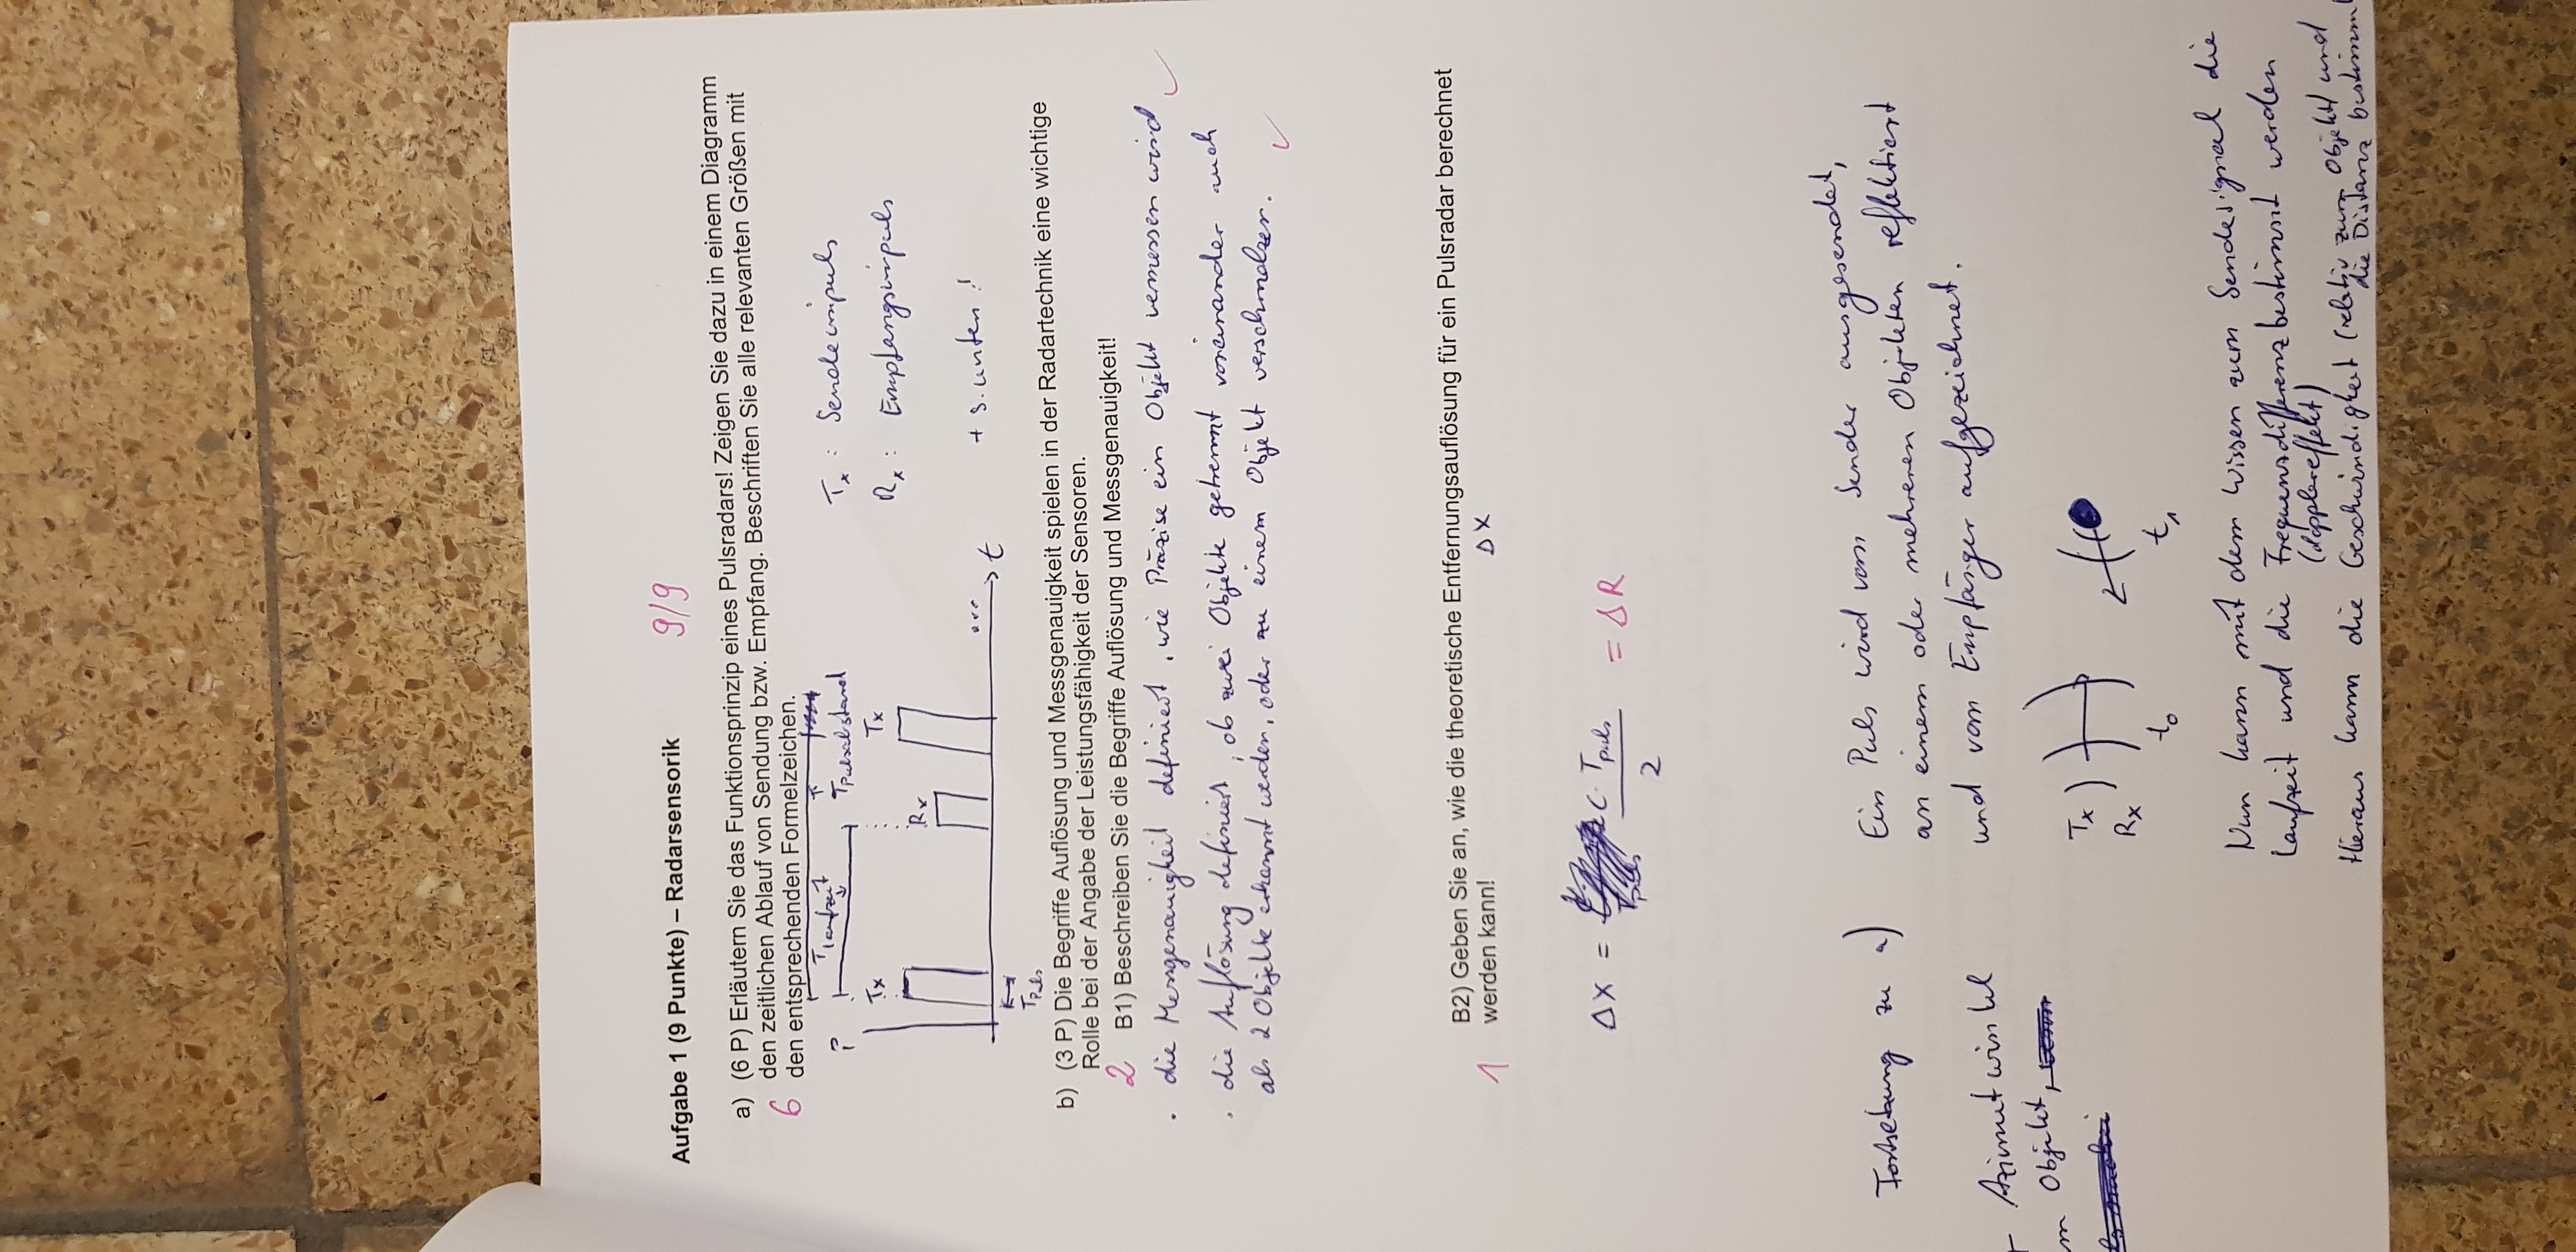 Aufgabe 1 (9 Punkte) – Radarsensorik 9/9
a) (6 P) Erläutern Sie das Funktionsprinzip eines Pulsradars! Zeigen Sie dazu in einem Diagramm
den zeitlichen Ablauf von Sendung bzw. Empfang. Beschriften Sie alle relevanten Größen mit
6 den entsprechenden Formelzeichen.
TLaufzeit
TPulsabstand
P
Tx
Rx
Tx
... t
TPuls
Tx : Sendeimpuls
Rx : Empfangsimpuls
+ s. unten !
b) (3 P) Die Begriffe Auflösung und Messgenauigkeit spielen in der Radartechnik eine wichtige
Rolle bei der Angabe der Leistungsfähigkeit der Sensoren.
2 B1) Beschreiben Sie die Begriffe Auflösung und Messgenauigkeit!
· die Messgenauigkeit definiert, wie Präzise ein Objekt vermessen wird ✓
· die Auflösung definiert, ob zwei Objekte getrennt voneinander auch
als 2 Objekte erkannt werden, oder zu einem Objekt verschmolzen. ✓
B2) Geben Sie an, wie die theoretische Entfernungsauflösung für ein Pulsradar berechnet
1 werden kann! Δx
Δx = c · Tpuls / 2 = ΔR
Fortsetzung zu a)
Ein Puls wird vom Sender ausgesendet,
an einem oder mehreren Objekten reflektiert
und vom Empfänger aufgezeichnet.
Azimutwinkel
Objekt,
Tx
Rx
t0
t1
Nun kann mit dem Wissen zum Sendesignal die
Laufzeit und die Frequenzdifferenz bestimmt werden
(dopplereffekt)
Hieraus kann die Geschwindigkeit (relativ zum Objekt) und
die Distanz bestimmt